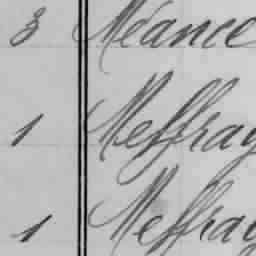 3 Méance
1 Meffray
1 Meffray